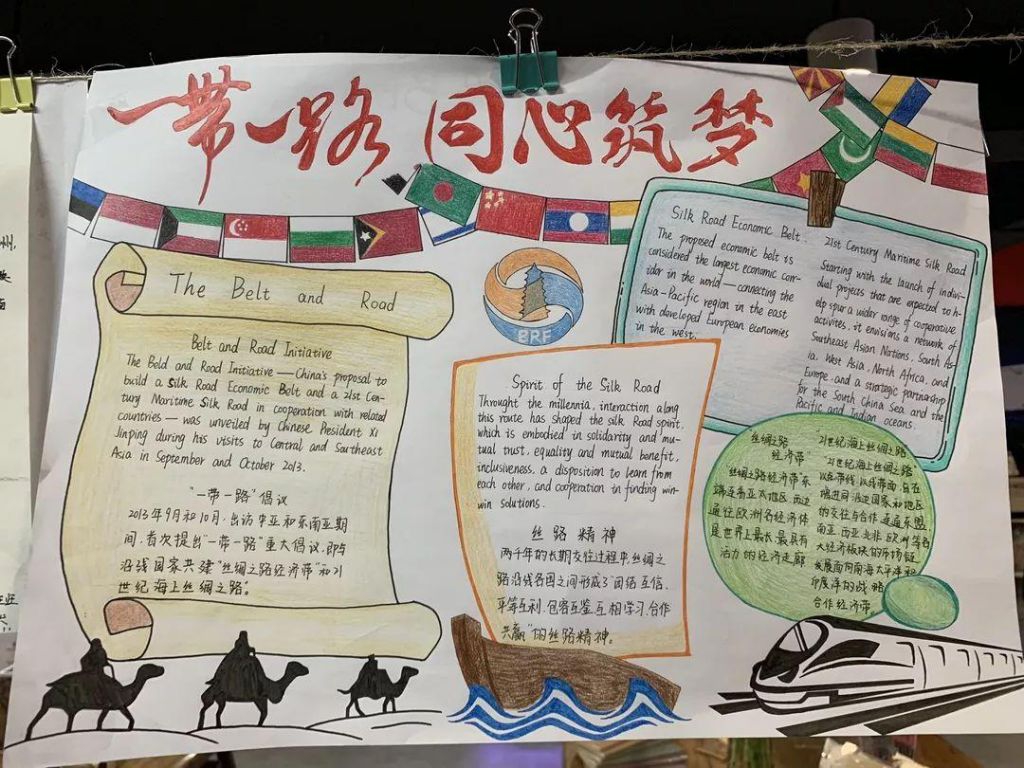 一带一路 同心筑梦
The Belt and Road
Belt and Road Initiative
The Beld and Road Initiative — China's proposal to
build a Silk Road Economic Belt and a 21st Cen-
tury Maritime Silk Road in cooperation with related
countries — was unveiled by Chinese President Xi
Jinping during his visits to Central and Southeast
Asia in September and October 2013.
"一带一路"倡议
2013年9月和10月,出访中亚和东南亚期
间,首次提出"一带一路"重大倡议,即与
沿线国家共建"丝绸之路经济带"和21
世纪海上丝绸之路"。
BRF
Spirit of the Silk Road
Throught the millennia, interaction along
this route has shaped the silk Road spirit,
which is embodied in solidarity and mu-
tual trust, equality and mutual benefit,
inclusiveness, a disposition to learn from
each other, and cooperation in finding win-
win solutions.
丝路精神
两千年的长期交往过程中,丝绸之
路沿线各国之间形成了"团结互信,
平等互利,包容互鉴,互相学习,合作
共赢"的丝路精神。
Silk Road Economic Belt.
The propesed economic belt is
considered the largest economic corr-
idor in the world — connecting the
Asia-Pacific region in the east
with developed European economies
in the west.
21st Century Maritime Silk Road
Starting with the launch of indivi-
dual projects that are expected to h-
elp spur a wider range of cooperative
activites, it envisions a network of
Southeast Asian Nations, South As-
ia, West Asia, North Africa, and
Europe and a strategic partnership
for the South China Sea and the
Pacific and Indian oceans.
丝绸之路
经济带
丝绸之路经济带"东
端连着亚太地区,西边
通往欧洲各经济体
是世界上最长,最具有
活力的经济走廊
"21世纪海上丝绸之路
"21世纪海上丝绸之路"
以点带线,以线带面,旨在
增进同沿边国家和地区
的交往与合作,连通东盟
南亚,西亚,北非,欧洲等各
大经济板块的市场链
发展面向南海太平洋和
印度洋的战略
合作经济带